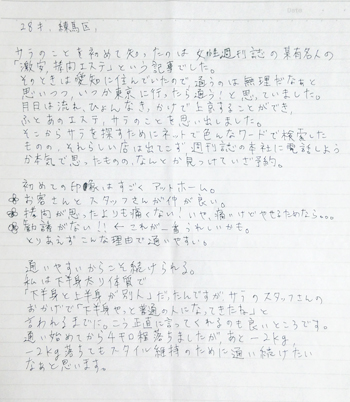 28才、練馬区。
サラのことを初めて知ったのは 女性週刊誌の某有名人の
「激安 揉肉エステ」という記事でした。
そのときは愛知に住んでいたので、通うのは無理だなぁと
思いつつ、いつか東京に行ったら通う！と思っていました。
月日は流れ、ひょんなきっかけで上京することができ、
ふとあのエステ、サラのことを思い出しました。
そこからサラを探すためにネットで色んなワードで検索した
ものの、それらしい店は出てこず週刊誌の本社に電話しよう
か本気で思ったものの、なんとか見つけていざ予約。
初めての印象はすごくアットホーム。
お客さんとスタッフさんが仲が良い。
揉肉が思ったよりも痛くない！いや、痛いけどやせるためなら。。。
勧誘がない!! ← これが一番うれしいかも。
とりあえずこんな理由で通いやすい。
通いやすいからこそ続けられる。
私は下半身太り体質で
「下半身と上半身が別人」だったんですがサラのスタッフさんの
おかげで「下半身やっと普通の人になってきたね」と
言われるまでに。こう正直に言ってくれるのも良いところです。
通い始めてから4キロ程落ちましたが、あと-2kg、
-2kg落ちてもスタイル維持のために通い続けたい
なぁと思います。